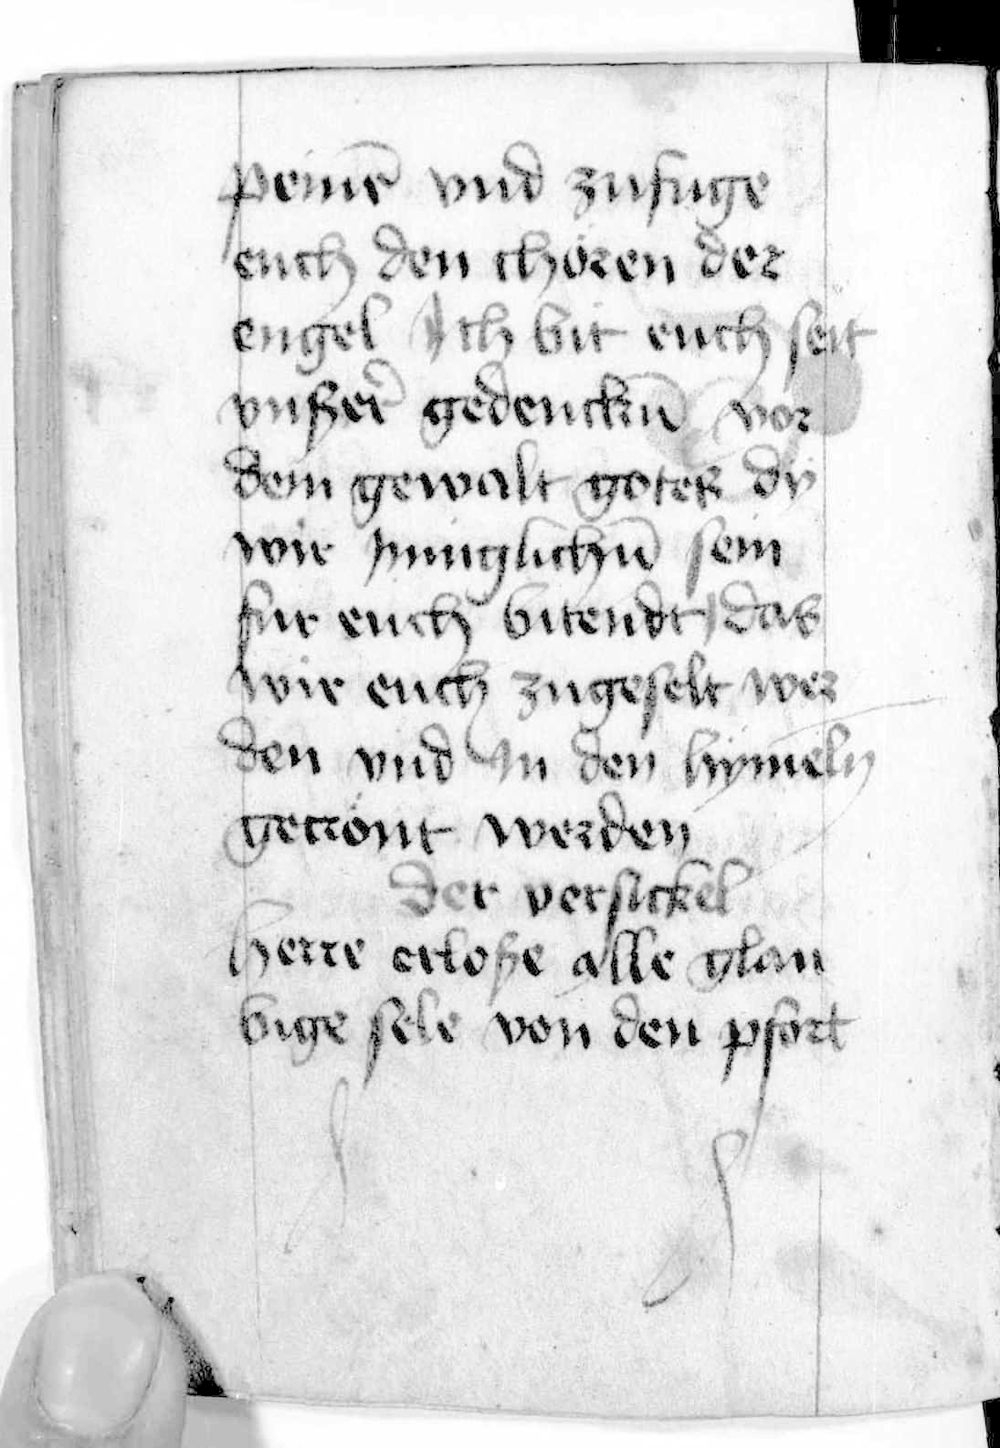 peinē vnd zufuge
euch den chören der
engel Ich bit euch seit
vnßer̄ gedenckn̄ vor
dem gewalt gotes dy
wir ynniglichn̄ sein
fur euch bitendt das
wir euch zugeselt wer
den vnd In den hymeln
gecrönt werden
Der versickel
herre erloße alle glau
bige sele von den pfort